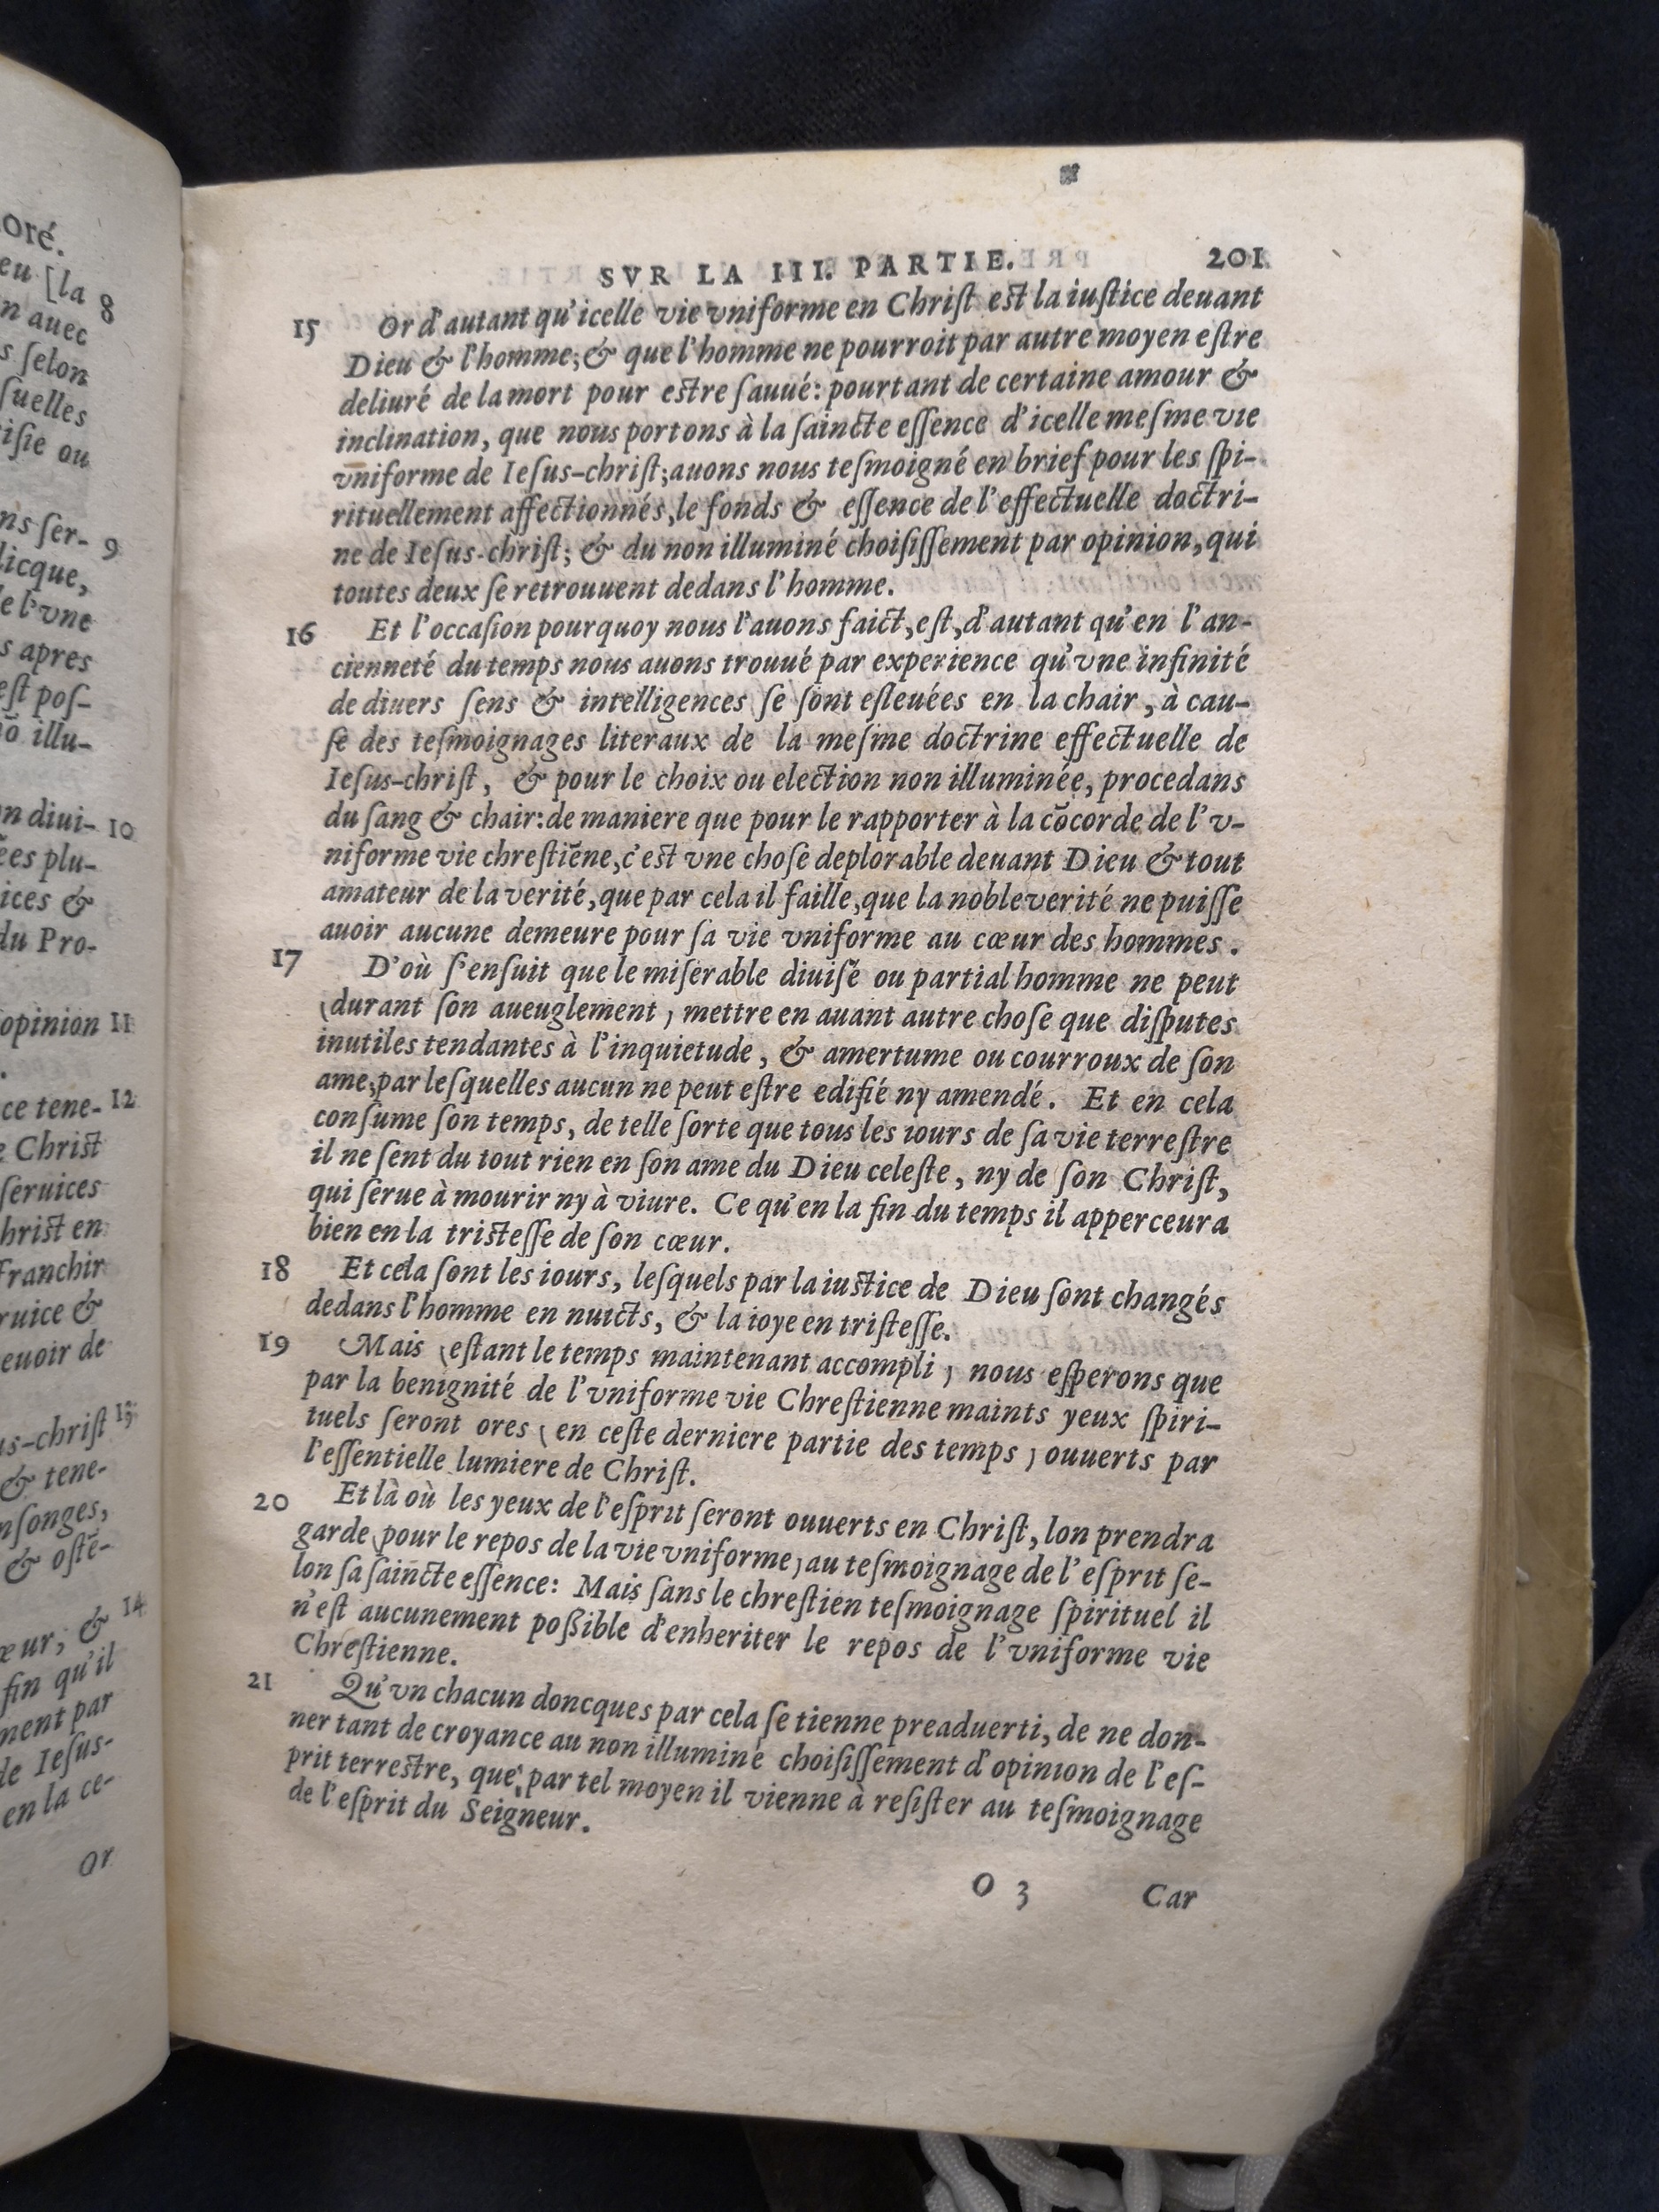 oré.
eu [la 8
n auec
s ſelon
ſuelles
iſie ou
ns ſer- 9
licque,
e l'vne
s apres
eſt poſ-
õ illu-
n diui- 10
ées plu-
ices &
du Pro-
opinion 11
ce tene- 12
e Chriſt
ſeruices
hriſt en
franchir
ruice &
euoir de
us-chriſt 13
& tene-
nſonges,
& oſtẽ-
14
œur; &
fin qu'il
ment par
de Ieſus-
en la ce-
Or
SVR LA III. PARTIE. 201
15 Or d'autant qu'icelle vie vniforme en Chriſt eſt la iuſtice deuant
Dieu & l'homme; & que l'homme ne pourroit par autre moyen eſtre
deliuré de la mort pour eſtre ſauué: pourtant de certaine amour &
inclination, que nous portons à la ſaincte eſſence d'icelle meſme vie
vniforme de Ieſus-chriſt; auons nous teſmoigné en brief pour les ſpi-
rituellement affectionnés, le fonds & eſſence de l'effectuelle doctri-
ne de Ieſus-chriſt; & du non illuminé choiſiſſement par opinion, qui
toutes deux ſe retrouuent dedans l'homme.
16 Et l'occaſion pourquoy nous l'auons faict, eſt, d'autant qu'en l'an-
cienneté du temps nous auons trouué par experience qu'vne infinité
de diuers ſens & intelligences ſe ſont eſleuées en la chair, à cau-
ſe des teſmoignages literaux de la meſme doctrine effectuelle de
Ieſus-chriſt, & pour le choix ou election non illuminée, procedans
du ſang & chair: de maniere que pour le rapporter à la cõcorde de l'v-
niforme vie chreſtiẽne, c'eſt vne choſe deplorable deuant Dieu & tout
amateur de la verité, que par cela il faille, que la noble verité ne puiſſe
auoir aucune demeure pour ſa vie vniforme au cœur des hommes.
17 D'où ſ'enſuit que le miſerable diuiſé ou partial homme ne peut
(durant ſon aueuglement) mettre en auant autre choſe que diſputes
inutiles tendantes à l'inquietude, & amertume ou courroux de ſon
ame; par leſquelles aucun ne peut eſtre edifié ny amendé. Et en cela
conſume ſon temps, de telle ſorte que tous les iours de ſa vie terreſtre
il ne ſent du tout rien en ſon ame du Dieu celeſte, ny de ſon Chriſt,
qui ſerue à mourir ny à viure. Ce qu'en la fin du temps il apperceura
bien en la triſteſſe de ſon cœur.
18 Et cela ſont les iours, leſquels par la iuſtice de Dieu ſont changés
dedans l'homme en nuicts, & la ioye en triſteſſe.
19 Mais (eſtant le temps maintenant accompli) nous eſperons que
par la benignité de l'vniforme vie Chreſtienne maints yeux ſpiri-
tuels ſeront ores (en ceſte derniere partie des temps) ouuerts par
l'eſſentielle lumiere de Chriſt.
20 Et là où les yeux de l'eſprit ſeront ouuerts en Chriſt, lon prendra
garde (pour le repos de la vie vniforme) au teſmoignage de l'eſprit ſe-
lon ſa ſaincte eſſence: Mais ſans le chreſtien teſmoignage ſpirituel il
n'eſt aucunement poßible d'enheriter le repos de l'vniforme vie
Chreſtienne.
21 Qu'vn chacun doncques par cela ſe tienne preaduerti, de ne don-
ner tant de croyance au non illuminé choiſiſſement d'opinion de l'eſ-
prit terreſtre, que, par tel moyen il vienne à reſiſter au teſmoignage
de l'eſprit du Seigneur.
O 3 Car